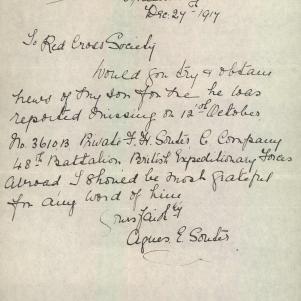 Dec. 27th 1917
To Red Cross Society
Would you try & obtain
news of my son for me he was
reported missing on 12th October
No. 3610 B Private F. H. Souter C Company
48th Battalion British Expeditionary Forces
Abroad I should be most grateful
for any word of him
Yours faithf
Agnes E. Souter